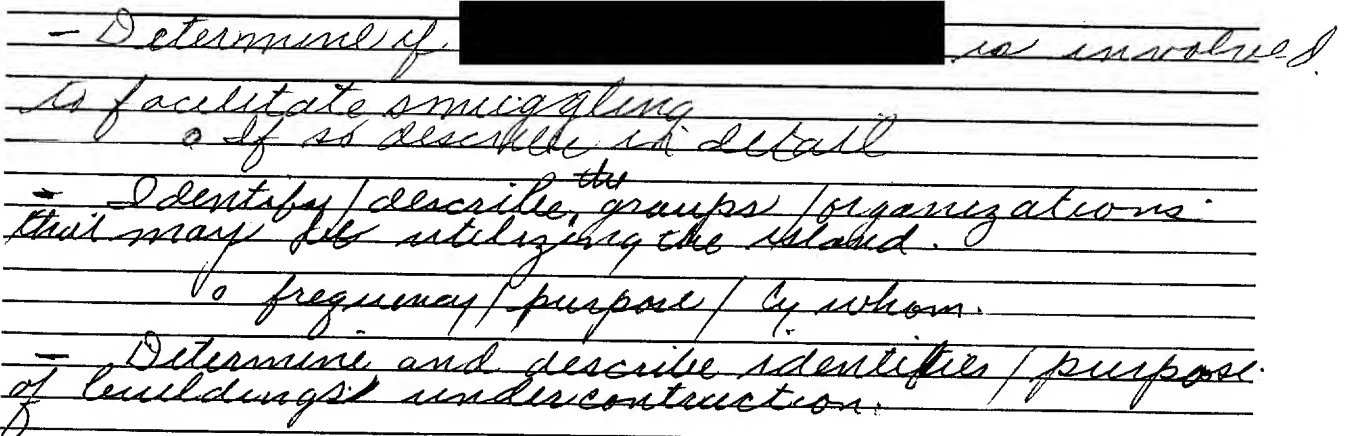 - Determine if is involved
to facilitate smuggling
o If so describe in detail
- Identify / describe the groups / organizations
that may be utilizing the island.
o frequency / purpose / by whom.
- Determine and describe identifies / purpose
of buildings under contruction.